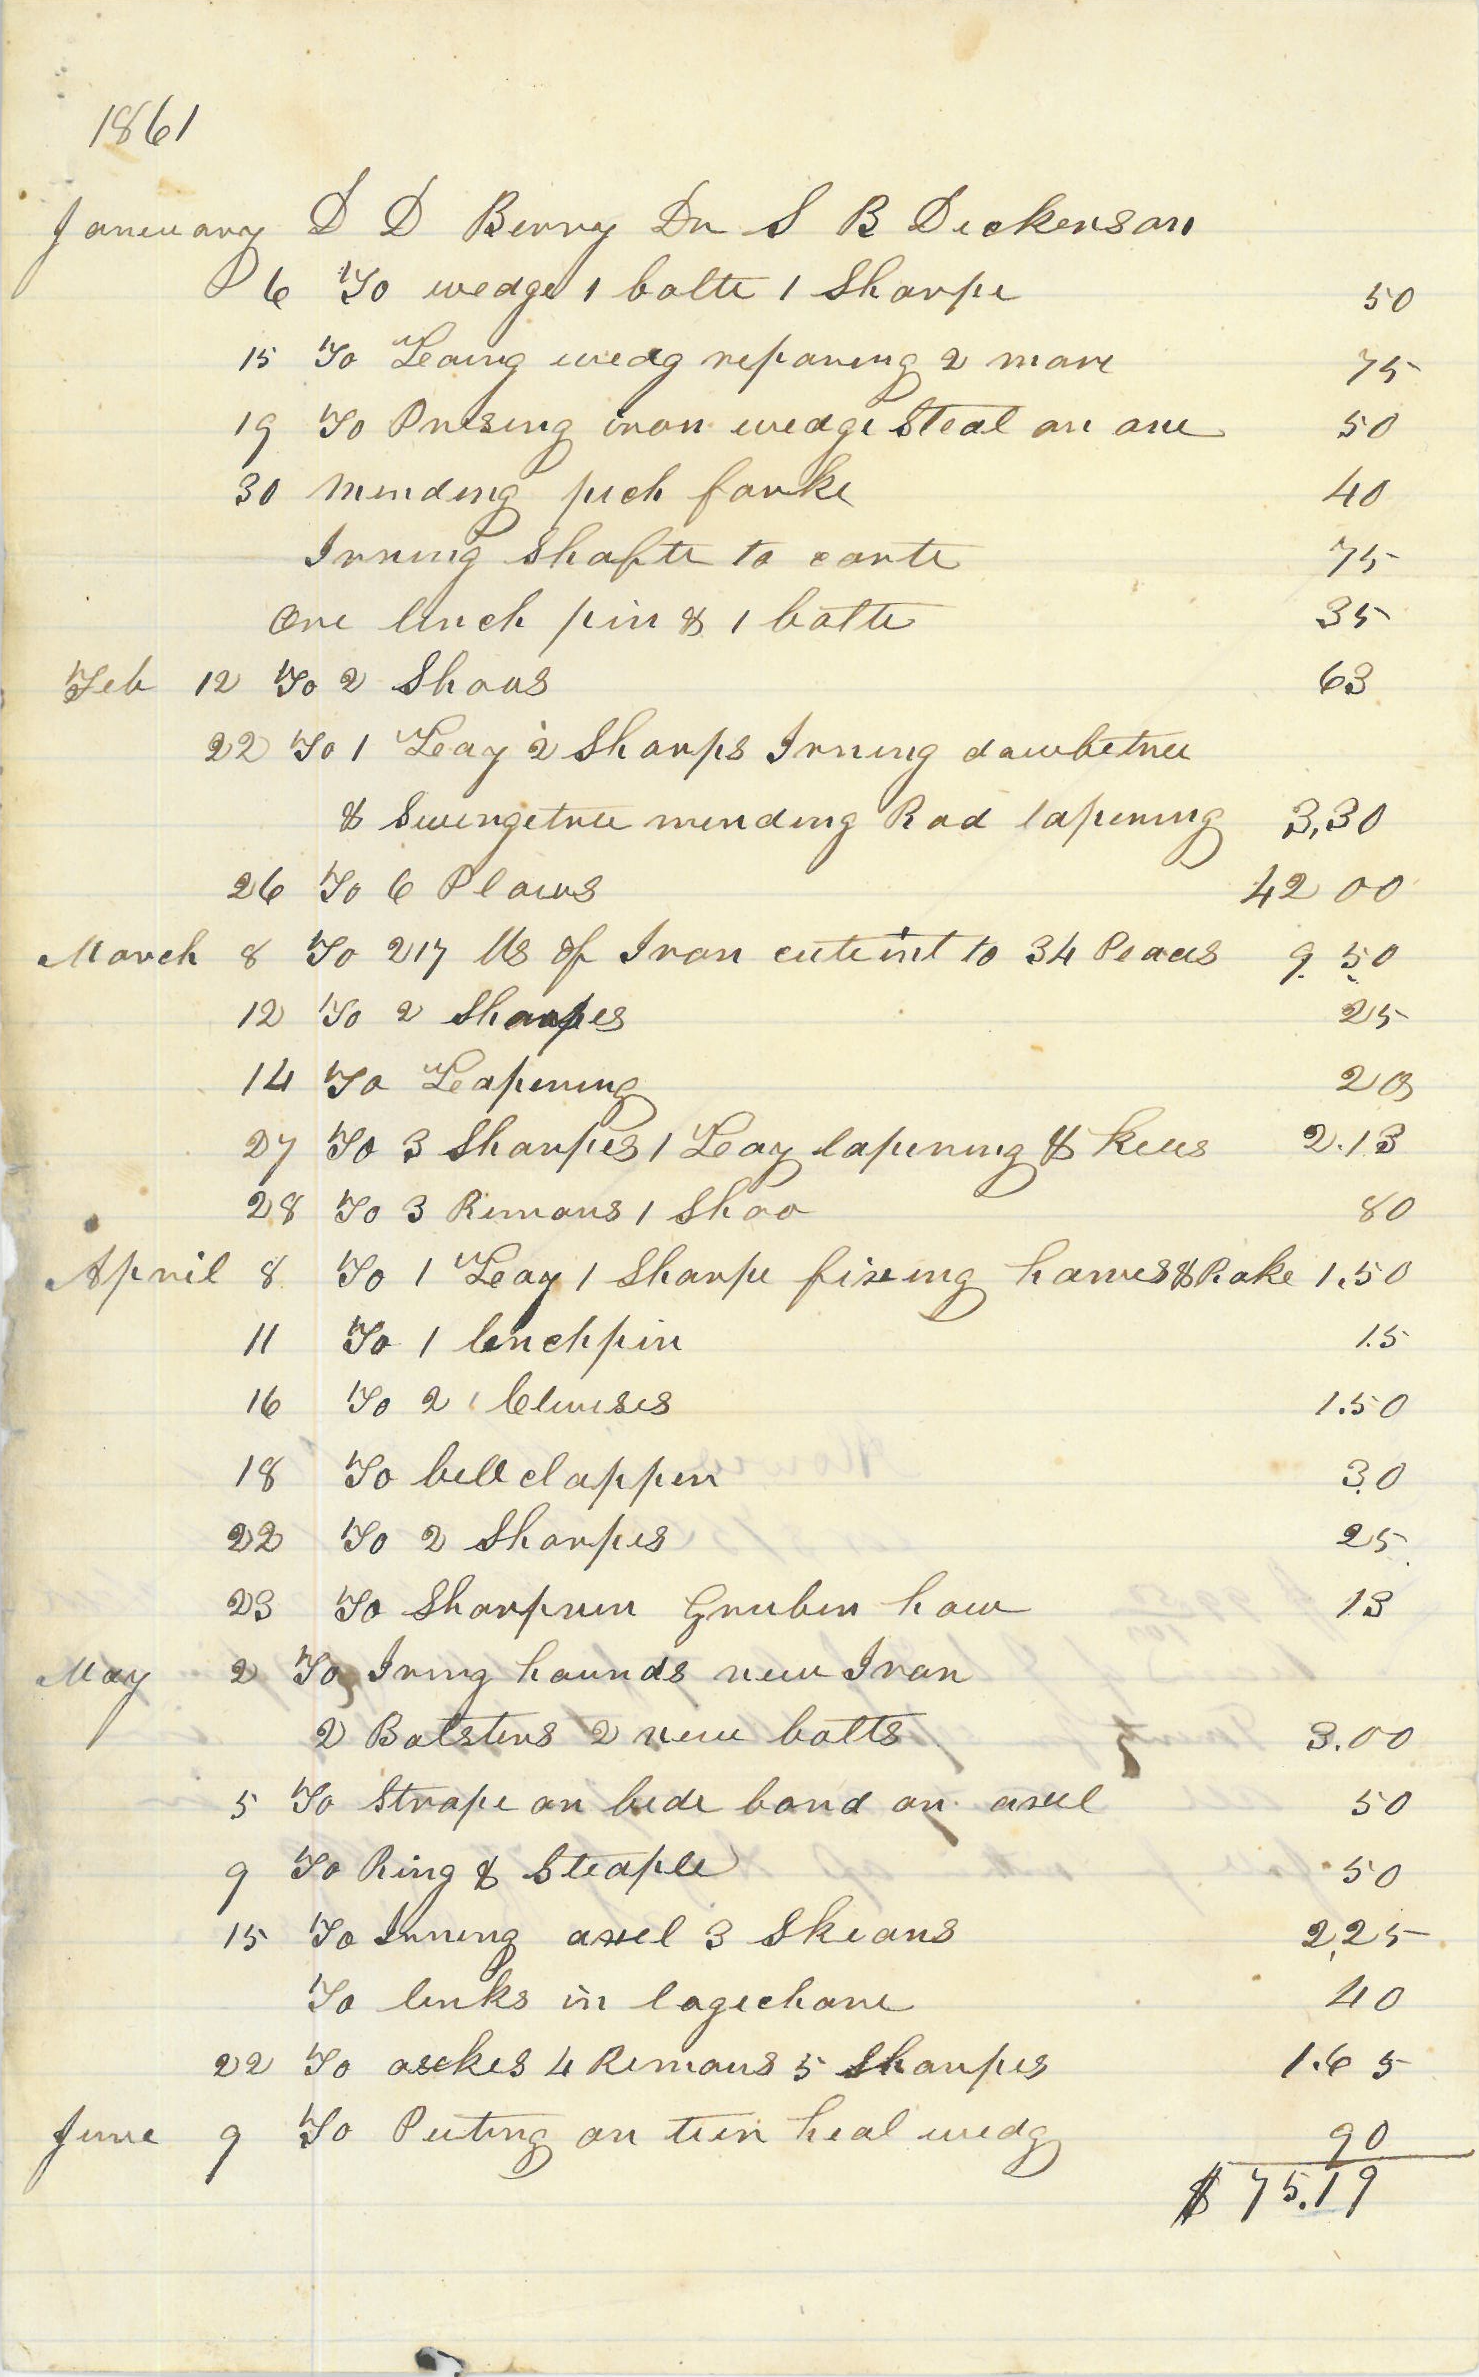 1861
Januuary D D Berry Dr S B Dickenson
6 To wedge 1 bolte 1 Sharpe 50
15 To Leaing wedg reparing 2 more 75
19 To Presing iron wedge Steal on one 50
30 Mending pich forke 40
Irning Shafte to carte 75
One linch pin & 1 bolte 35
Feb 12 To 2 Shous 63
22 To 1 Leay 2 Sharps Irning dowbetree
& Swingetree mending Rod lapining 3,30
26 To 6 Plows 42 00
March 8 To 217 lbs of Iron cute int to 34 Peaces 9.50
12 To 2 Sharpes 25
14 To Leapining
27 To 3 Sharpes 1 Leay lapining & kees 2.13
28 To 3 Rimous 1 Shoo 80
April 8 To 1 Leay 1 Sharpe fixing hames & Rake 1.50
11 To 1 linchpin 15
16 To 2 Clivises 1.50
18 To bell clappin 30
22 To 2 Sharpes 25
23 To Sharpnin Grubin how 13
May 2 To Irning hounds new Iron
2 Bolsters 2 new bolts 3.00
5 To Strape on bede band on axel 50
9 To Ring & Steaple 50
15 To Irning axel 3 Skeans 2,25
To links in logechane 40
22 To 4 Rimous 5 Sharpes 1.65
June 9 To Puting on tin heal wedg 90
$ 75.19